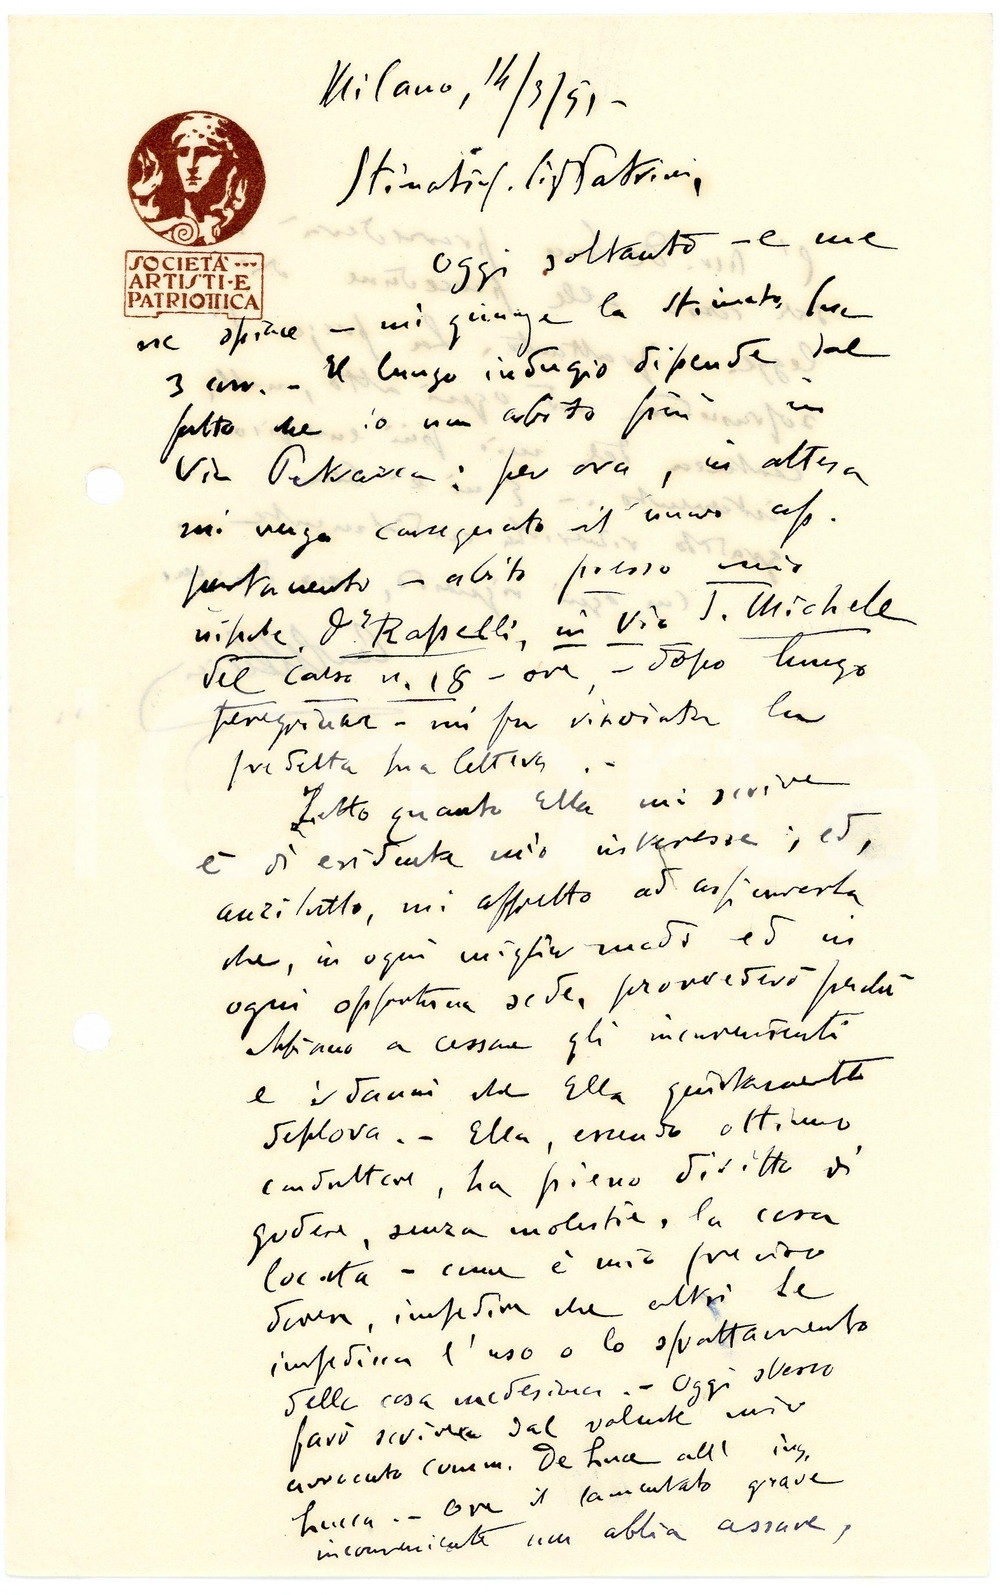 Milano, 14/3/51 -
SOCIETÀ ···
ARTISTI·E
PATRIOTTICA
Oggi soltanto - e me
ne spiace - mi giunge la stimata sua
3 corr. - Il lungo indugio dipende dal
fatto che io non abito più in
Via Petrarca: per ora, in attesa
mi venga consegnato il nuovo ap-
partamento - abito presso mio
nipote, Dr Rapelli, in Via S. Michele
del Carso n. 18 - ove, - dopo lungo
peregrinar - mi fu rinviata la
predetta sua lettera. -
Letto quanto Ella mi scrive
è di evidente mio interesse; ed,
anzitutto, mi affretto ad assicurarla
che, in ogni miglior modo ed in
ogni opportuna sede, provvederò perchè
abbiano a cessare gli inconvenienti
e i danni che Ella giustamente
deplora. - Ella, essendo ottimo
conduttore, ha pieno diritto di
godere, senza molestie, la cosa
locata - come è mio preciso
dovere, impedire che altri Le
impedisca l'uso o lo sfruttamento
della cosa medesima. - Oggi stesso
farò scrivere dal valente mio
avvocato comm. De Luca all' ing.
Lucca. - Ove il lamentato grave
inconveniente non abbia a cessare,